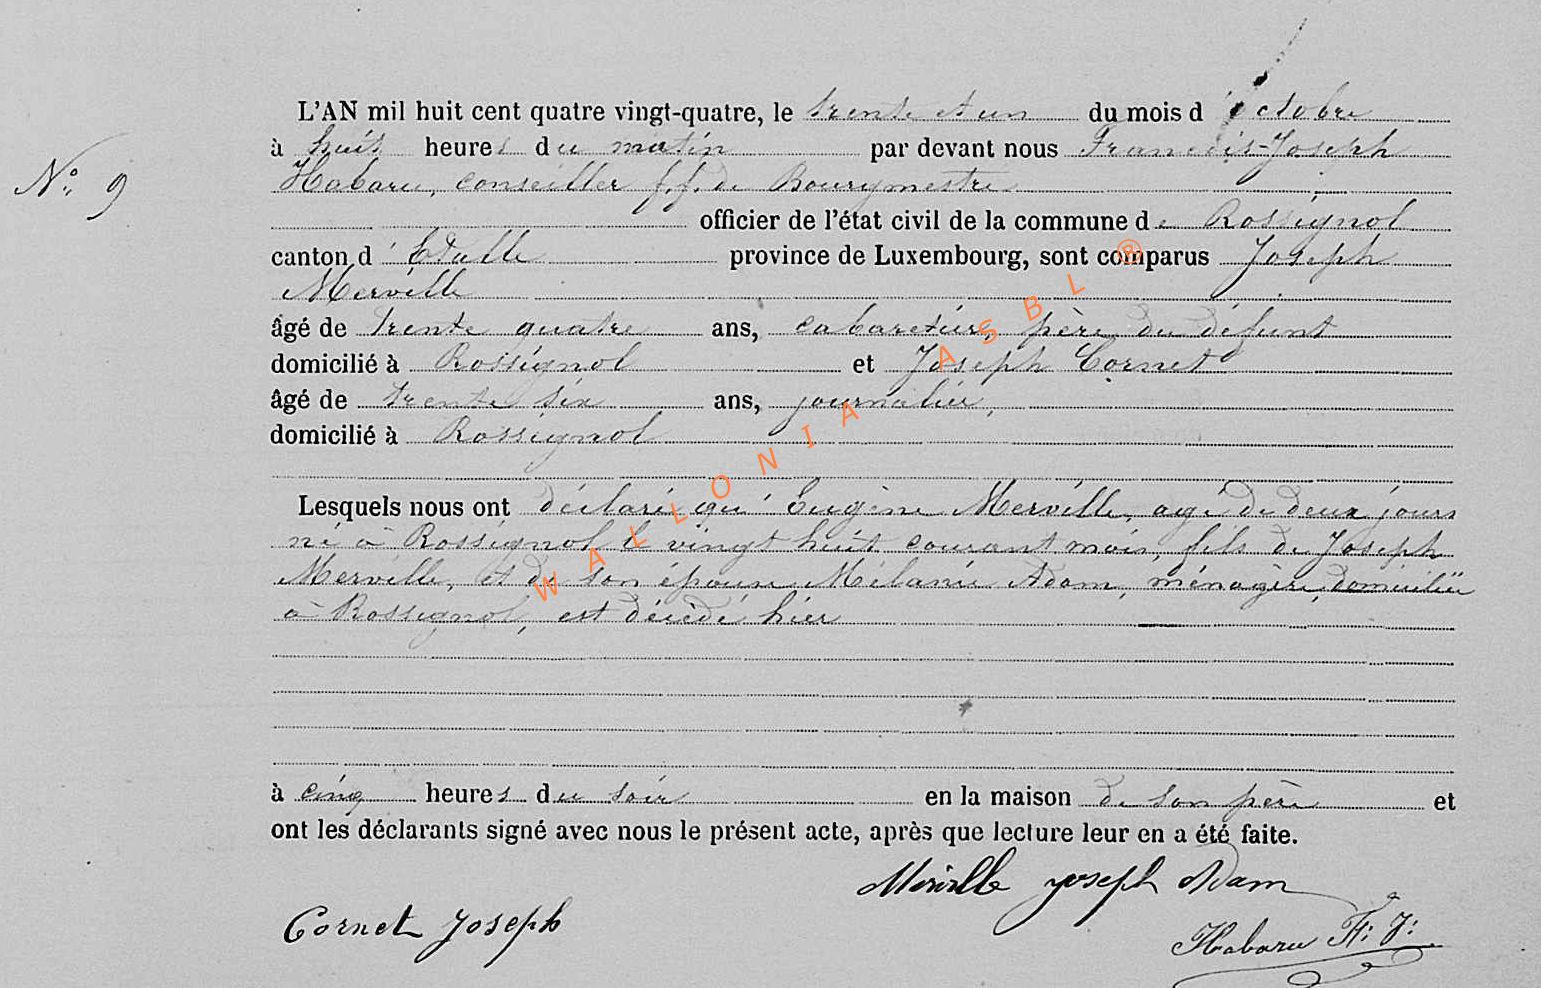 L'AN mil huit cent quatre vingt-quatre, le trente et un du mois d'octobre
à huit heures du matin par devant nous Francois-Joseph
N° 9
Habaru, conseiller f.f. de Bourgmestre
officier de l'état civil de la commune de Rossignol
canton d'Etalle province de Luxembourg, sont comparus Joseph
Merville
âgé de trente quatre ans, cabaretier, père du défunt
domicilié à Rossignol et Joseph Cornet
âgé de trente six ans, journalier,
domicilié à Rossignol
Lesquels nous ont déclaré qu'Eugène Merville, agé de deux jours
né à Rossignol le vingt huit courant mois, fils de Joseph
Merville, et de son épouse Mélanie Adam, ménagère, domiciliée
à Rossignol, est décédé hier
à cinq heures du soir en la maison de son père et
ont les déclarants signé avec nous le présent acte, après que lecture leur en a été faite.
Merville joseph Adam
Cornet Joseph
Habaru F: J:
WALLONIA ASBL ®